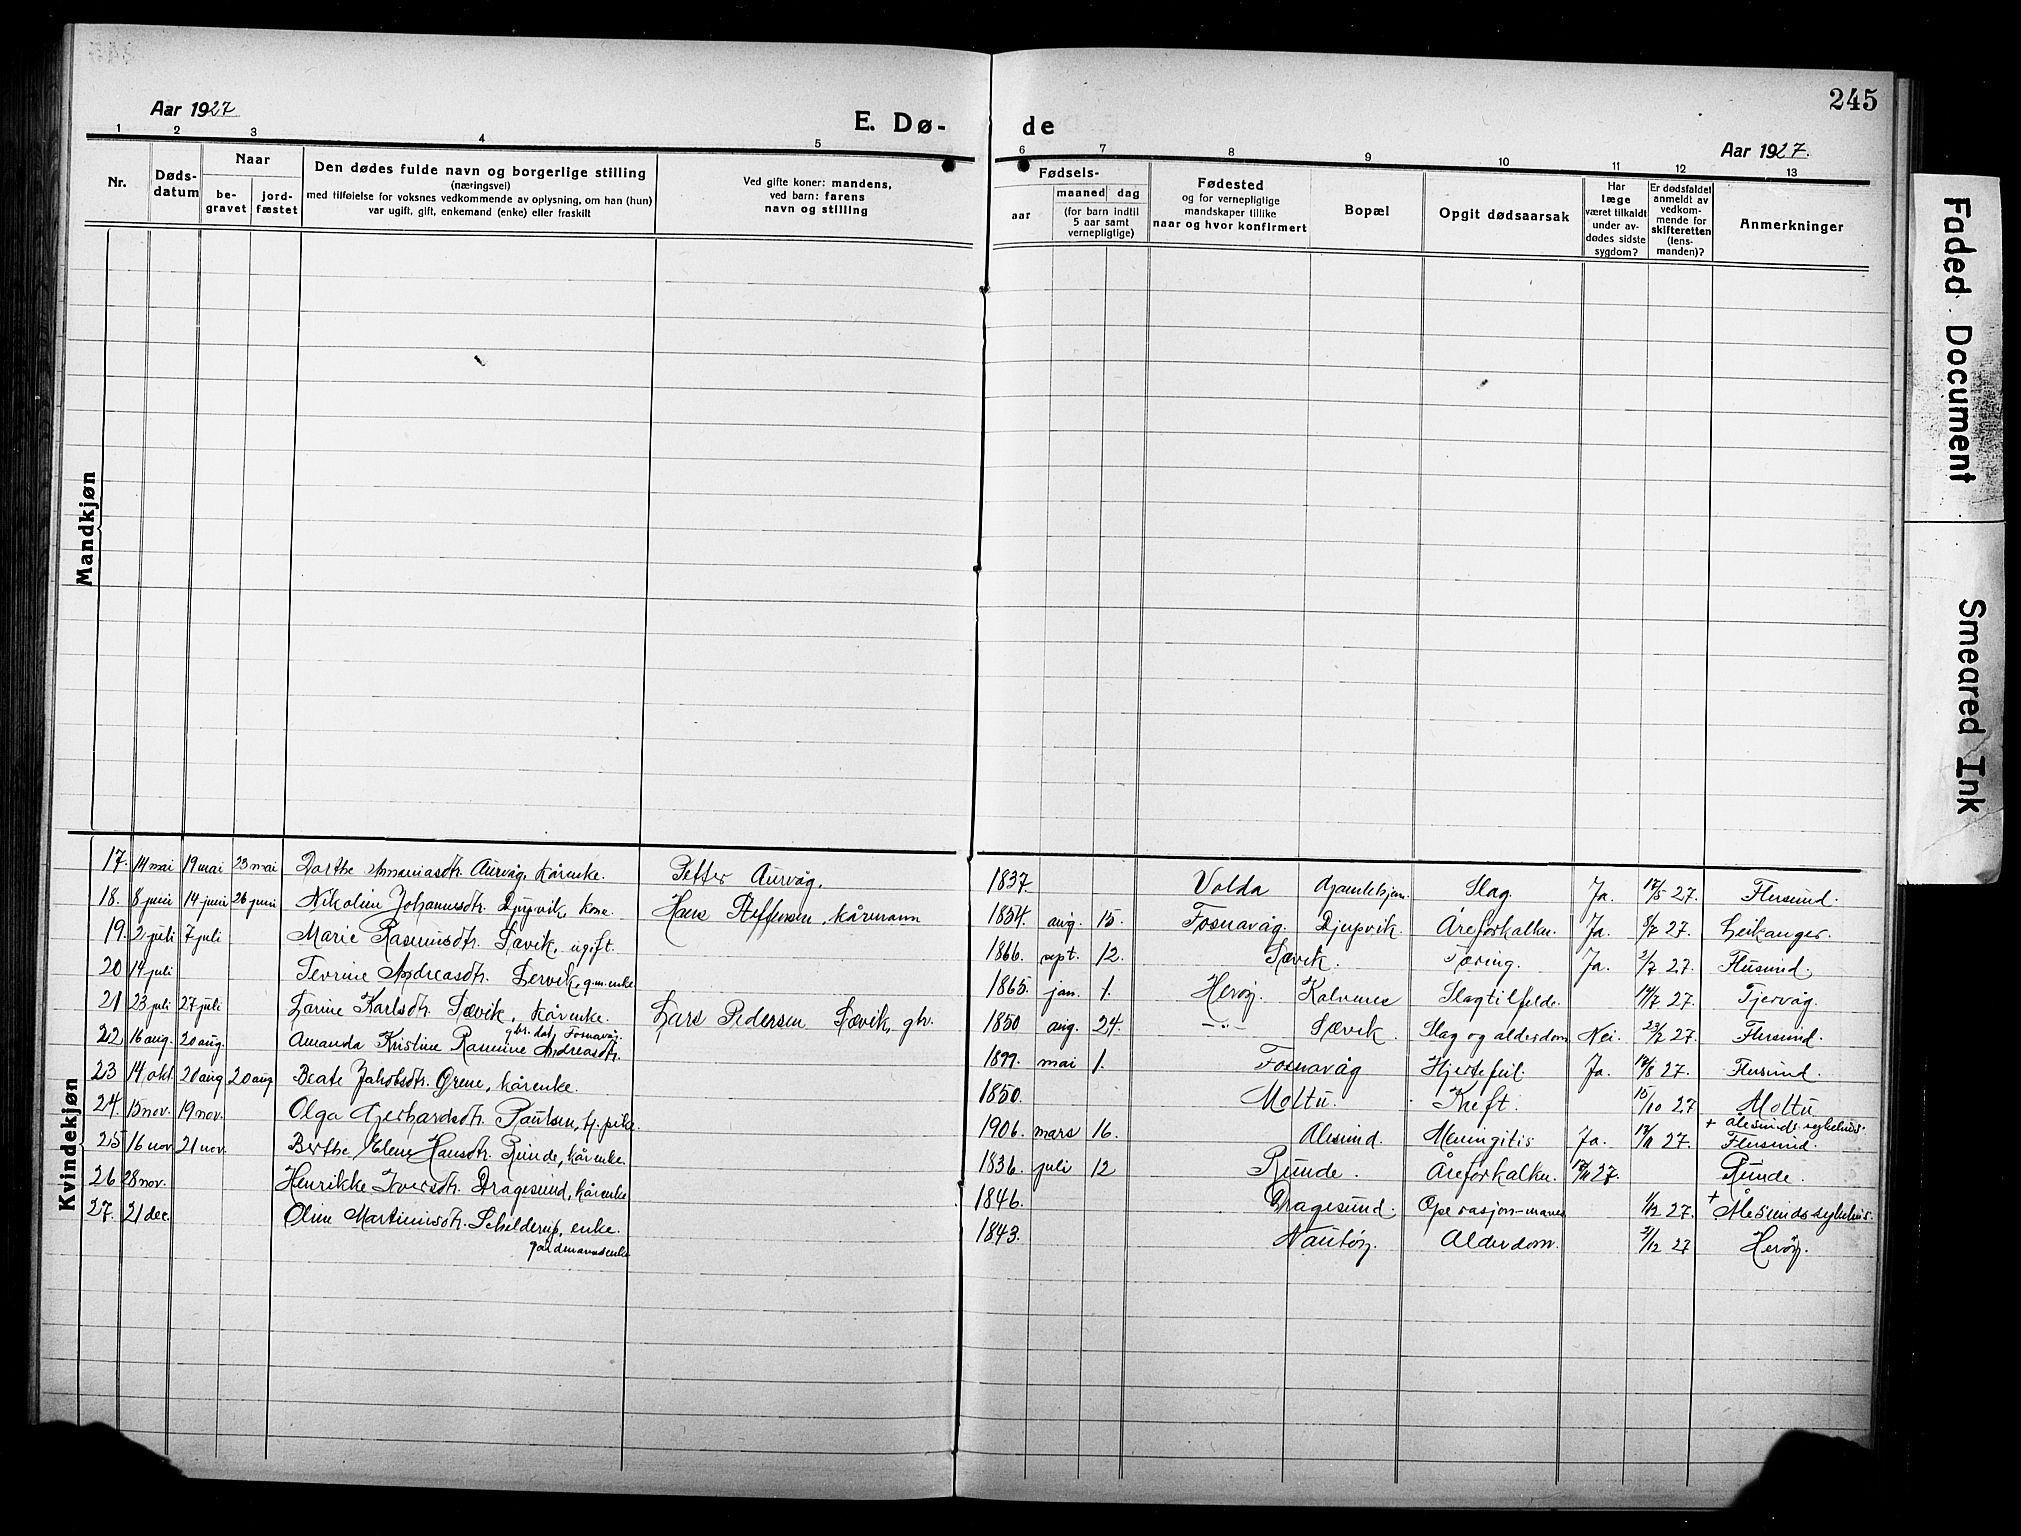 245
Aar 1927
E. Dø- de
Aar 1927.
1 2 3 4 5 6 7 8 9 10 11 12 13
Nr.
Døds-
datum
Naar
be-
gravet
jord-
fæstet
Den dødes fulde navn og borgerlige stilling
(næringsvei)
med tilføielse for voksnes vedkommende av oplysning, om han (hun)
var ugift, gift, enkemand (enke) eller fraskilt
Ved gifte koner: mandens,
ved barn: farens
navn og stilling
Fødsels-
aar
maaned dag
(for barn indtil
5 aar samt
vernepligtige)
Fødested
og for vernepligtige
mandskaper tillike
naar og hvor konfirmert
Bopæl
Opgit dødsaarsak
Har
læge
været tilkaldt
under av-
dødes sidste
sygdom?
Er dødsfaldet
anmeldt av
vedkom-
mende for
skifteretten
(lens-
manden)?
Anmerkninger
Mandkjøn
Kvindekjøn
17. 14 mai 19 mai 23 mai Dorthe Ananiasdtr. Aurvåg, kårenke. Petter Aurvåg. 1837. Volda Slag Ja. 17/5 27. Flusund.
18. 8 juni 14 juni 26 juni Nikoline Johannesdtr. Djupvik, kone. Hans Steffensen, kårmann 1854. aug. 15. Fosnavåg. Djupvik. Åreforkalkn. Ja. 8/7 27. Leikanger.
19. 2 juli 7 juli Marie Rasmusdtr. Sævik, ugift. 1866. sept. 12. Sævik. Tæring. Ja. 2/7 27. Flusund.
20 14 juli Tevrine Andreasdtr. Lervik, gm. enke 1865. jan. 1. Herøy. Kalvenes Slagtilfelde. 14/7 27. Tjervåg.
21 23 juli 27 juli Larine Karlsdtr. Sævik, kårenke. Lars Pedersen Sævik, gbr. 1850 aug. 24. -"- Sævik. Slag og alderdom Nei. 23/7 27. Flusund.
gbr. dat. Fosnavåg.
22. 16 aug. 20 aug. Amanda Kristine Rasmine Andreasdtr. 1899. mai 1. Fosnavåg Hjertefeil. Ja. 17/8 27. Flusund.
23 14 okt. 20 aug 20 aug Beate Jakobsdtr. Grene, kårenke. 1850. Moltu. Kreft. 15/10 27 Moltu
24. 15 nov. 19 nov. Olga Gerhardsdtr. Paulsen, tj. pike. 1906. mars 16. Ålesund. Meningitis Ja. 17/11 27. + Ålesunds sykehus. Flusund.
25 16 nov 21 nov. Berthe Elene Hansdtr. Runde, kårenke. 1836. juli 12 Runde. Åreforkalkn. 17/11 27. Runde.
26 28 nov. Henrikke Iversdtr. Dragesund, kårenke 1846. Dragesund. Operasjon-maven 1/12 27. + Ålesunds sykehus.
27. 21 dec. Oline Martinusdtr. Schelderup, enke. 1843. Nautøy. Alderdom. 31/12 27 Herøy.
gardmannsenke
Faded Document
Smeared Ink